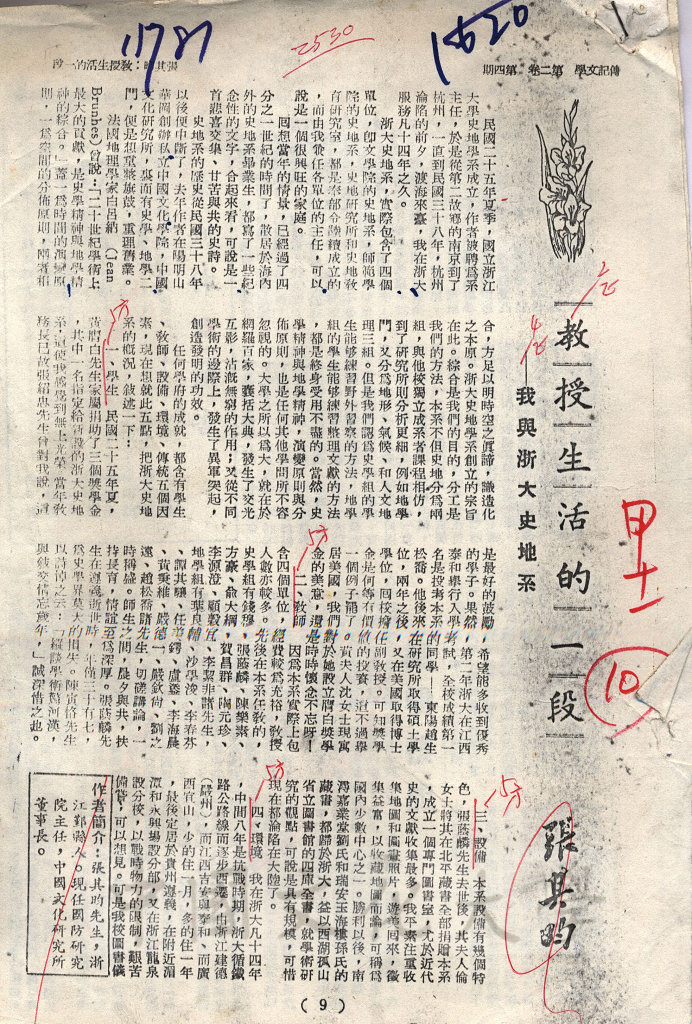 傳記文學 第二卷 第四期
張其昀：教授生活的一段
11781
2530
1620
教授生活的一段
——我與浙大史地系
張其昀
甲十一
10
民國二十五年夏季，國立浙江
大學史地學系成立，作者被聘為系
主任，於是從第二故鄉的南京到了
杭州，一直到民國三十八年，杭州
淪陷的前夕，渡海來臺，我在浙大
服務凡十四年之久。
浙大史地系，實際包含了四個
單位，卽文學院的史地系，師範學
院的史地系，史地研究所和史地敎
育研究室，都是奉部令陸續成立的
，而由我兼任各單位的主任，可以
說是一個很興旺的家庭。
囘想當年的情景，已經過了四
分之一世紀的時間了，散居於海內
外的史地系畢業生，都寫了一些紀
念性的文字，合起來看，可說是一
首悲喜交集、甘苦與共的史詩。
史地系的歷史從民國三十八年
以後便中斷了，去年作者在陽明山
華岡創辦私立中國文化學院，中國
文化研究所，裏面有史學、地學二
門，便是想重整旗鼓，重理舊業。
法國地理學家白呂納（Jean
Brunhes）曾說：「二十世紀學術上
最大的貢獻，是史學精神與地學精
神的綜合。」蓋一為時間的演變原
則，一為空間的分佈原則，兩者相
合，方足以明時空之眞諦，識造化
之本原。浙大史地學系創立的宗旨
在此。綜合是我們的目的，分工是
我們的方法，本系不但史地分為兩
組，與他校獨立成系者課程相仿，
到了研究所則分析更細，例如地學
門，又分為地形、氣候、和人文地
理三組。但是我們認為史學組的學
生能够練習野外習察的方法，地學
組的學生能够練習整理文獻的方法
，都是終身受用不盡的。當然，史
學精神與地學精神，演變原則與分
佈原則，也是任何其他學問所不容
忽視的。大學之所以為大，就在於
網羅百家，囊括大典，發生了交光
互影，沾漑無窮的作用；又從不同
學術的邊際上，發生了異軍突起，
創造發明的功效。
任何學府的成就，都含有學生
、敎師、設備、環境、傳統五個因
素，現在想就此五點，把浙大史地
系的概況，敘述一下：
一、學生　民國二十五年夏，
黃膺白先生家屬捐助了三個獎學金
，其中一名指定給新設的浙大史地
系，這使我感覺到無上光榮。當年敎
務長已故張紹忠先生曾對我說，這
是最好的鼓勵，希望能多收到優秀
的學子。果然，第二年浙大在江西
泰和舉行入學考試，全校成績第一
名是投考本系的同學——東陽趙生
松喬。他後來在研究所取得碩士學
位，兩年之後，又在美國取得博士
學位，囘校擔任副敎授。可知獎學
金是何等有價値的投資，這不過舉
一個例子罷了。黃夫人沈女士現寓
居美國，我們對於她設立膺白獎學
金的美意，還是時時懷念不忘呀！
二、敎師　因為本系實際上包
含四個單位，經費較為充裕，敎授
人數亦較多。先後在本系任敎的，
史學組有錢穆、張蔭麟、陳樂素、
方豪、俞大綱、賀昌羣、陶元珍、
李源澄、顧穀宜、李絜非諸先生，
地學組有葉良輔、沙學浚、李春芬
、譚其驤、任美鍔、盧鋈、李海晨
、黃秉維、嚴德一、嚴欽尙、劉之
遠、趙松喬諸先生，切磋講論，一
時稱盛。師生之間，晨夕與共，扶
持長育，情誼至為深厚。張蔭麟先
生在遵義逝世時，年僅三十有七，
為史學界莫大的損失。陳寅恪先生
以詩悼之云：「縱談學術驚河漢，
與敘交情忘歲年。」誠深惜之也。
三、設備　本系設備有幾個特
色，張蔭麟先生去世後，其夫人倫
女士將其在北平藏書全部捐贈本系
，成立一個專門圖書室，尤於近代
史的文獻收集最多。我平素注重收
集地圖和圖畫照片，遊美囘來，徵
集益富，以收藏地圖而論，可稱為
國內少數中心之一。勝利以後，南
潯嘉業堂劉氏和瑞安玉海樓孫氏的
藏書，都歸於浙大，益以西湖孤山
省立圖書館的四庫全書，就學術研
究的觀點，可說是具有規模，可惜
現在都淪陷在大陸了。
四、環境　我在浙大凡十四年
，中間八年是抗戰時期，浙大循鐵
路公路線而逐步西遷，由浙江建德
（嚴州），而江西吉安與泰和、而廣
西宜山，少的住一月，多的住一年
，最後定居於貴州遵義，在附近湄
潭和永興場設分部，又在浙江龍泉
設分校，以戰時物力的限制，艱苦
備嘗，可以想見。可是我校圖書儀
作者簡介：張其昀先生，浙
江鄞縣人。現任國防研究
院主任，中國文化研究所
董事長。
（ 9 ）